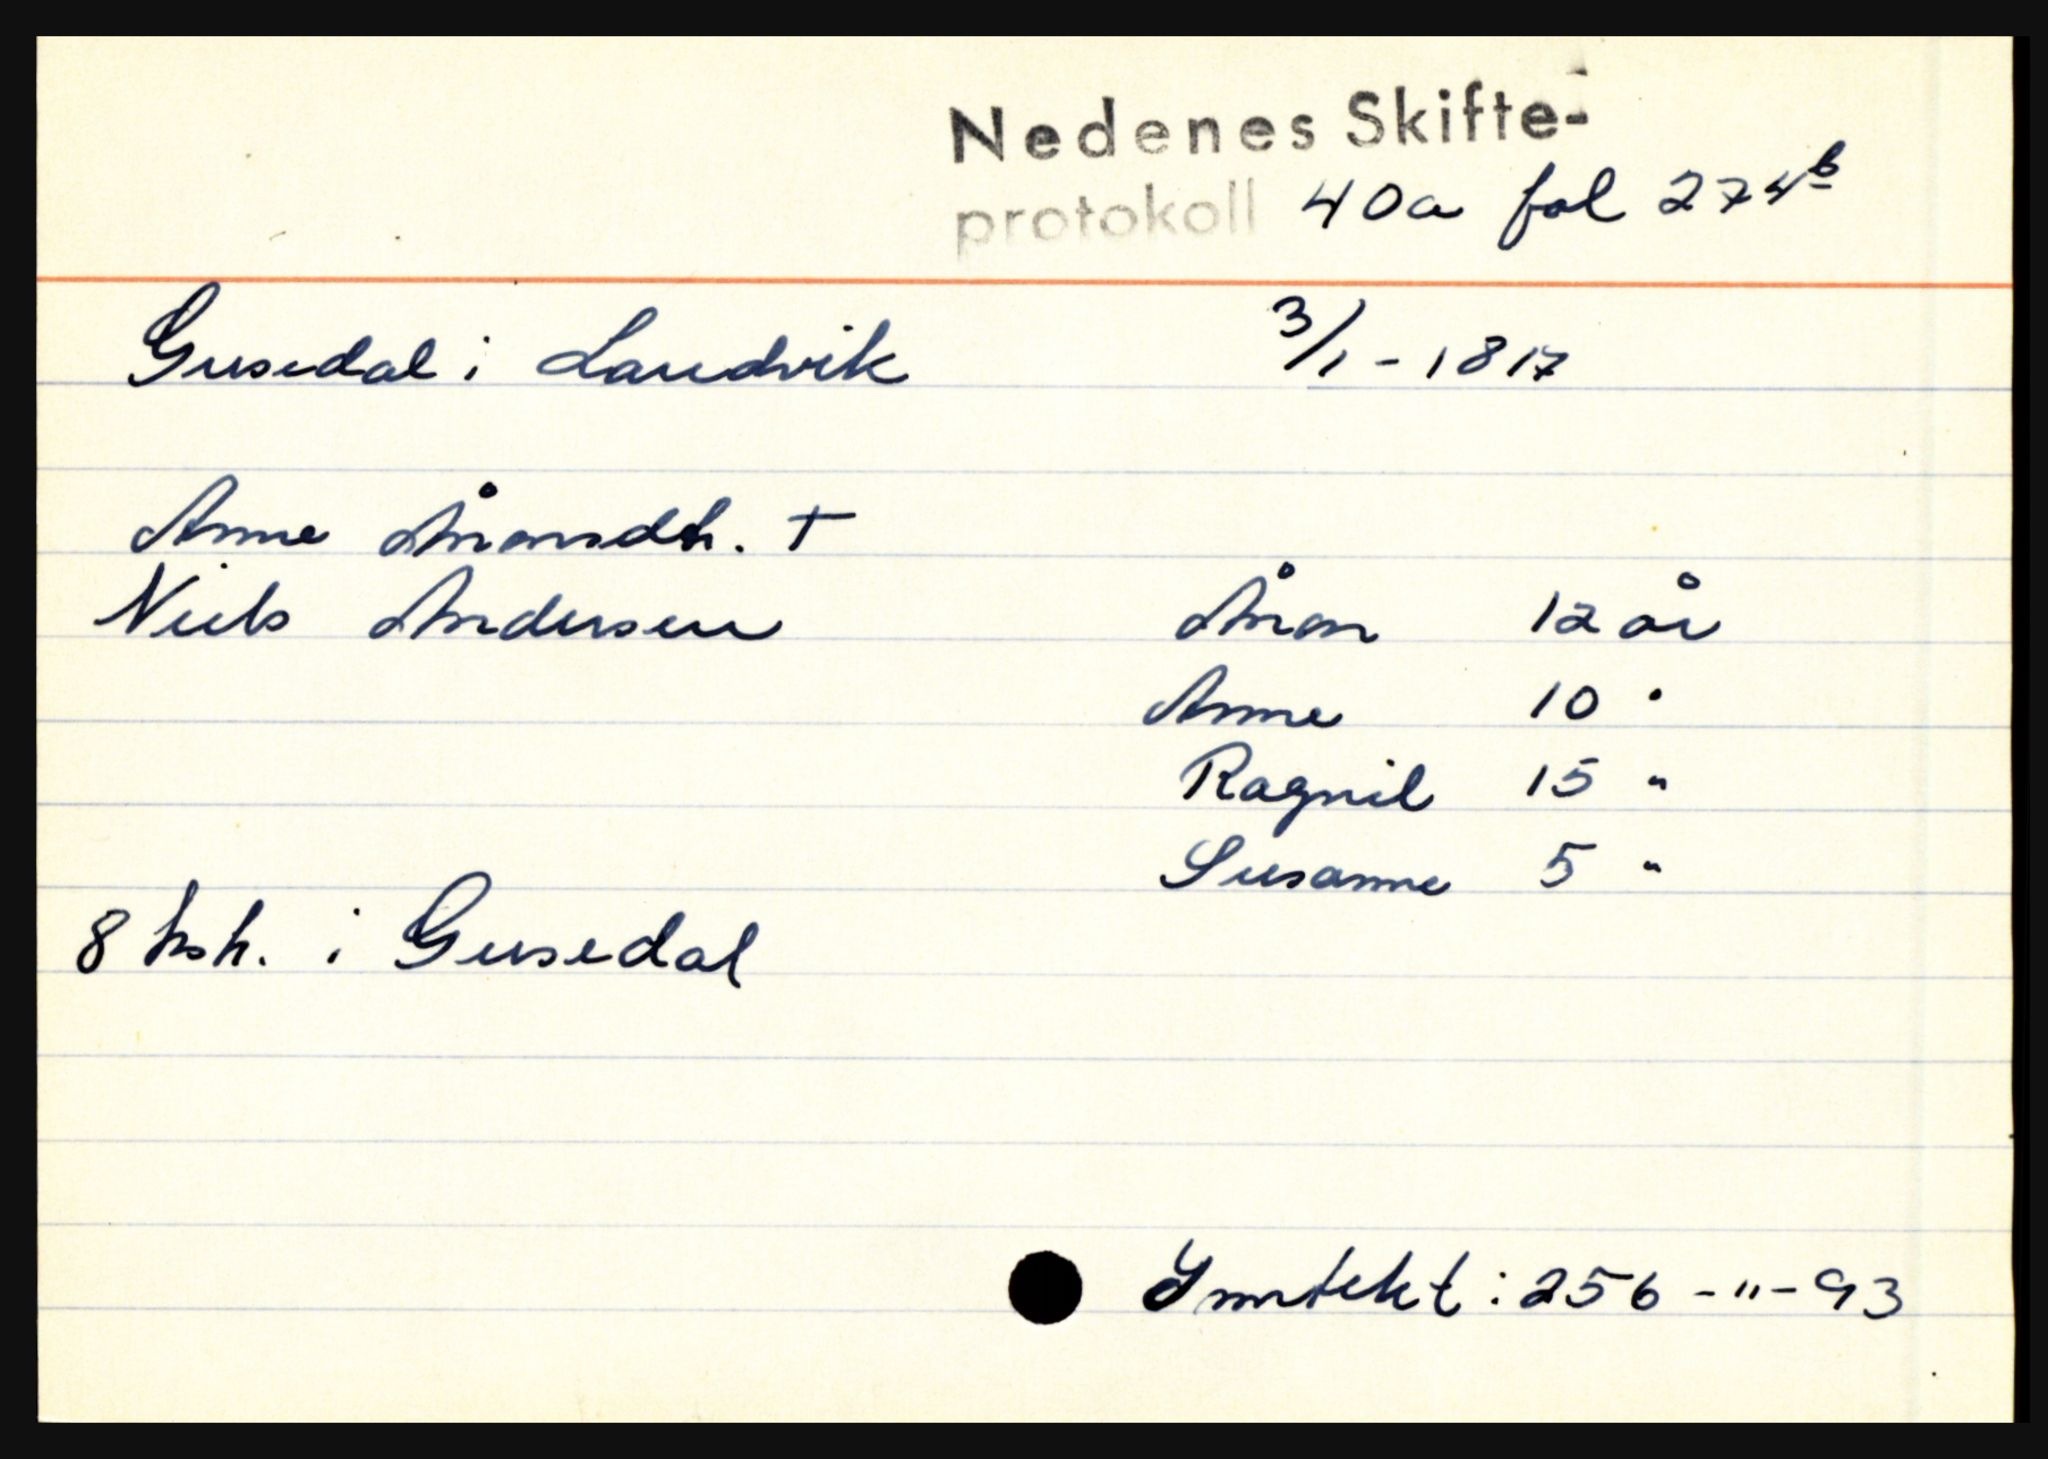 Nedenes Skifte-
protokoll 40a fol 274b
Gusedal i Landvik 3/1 - 1817
Anne Ånonsdtr. †
Niels Andersen Ånon 12 år
Anne 10 "
Ragnil 15 "
Susanne 5 "
8 ksh. i Gusedal
Inntekt: 256 - " - 93